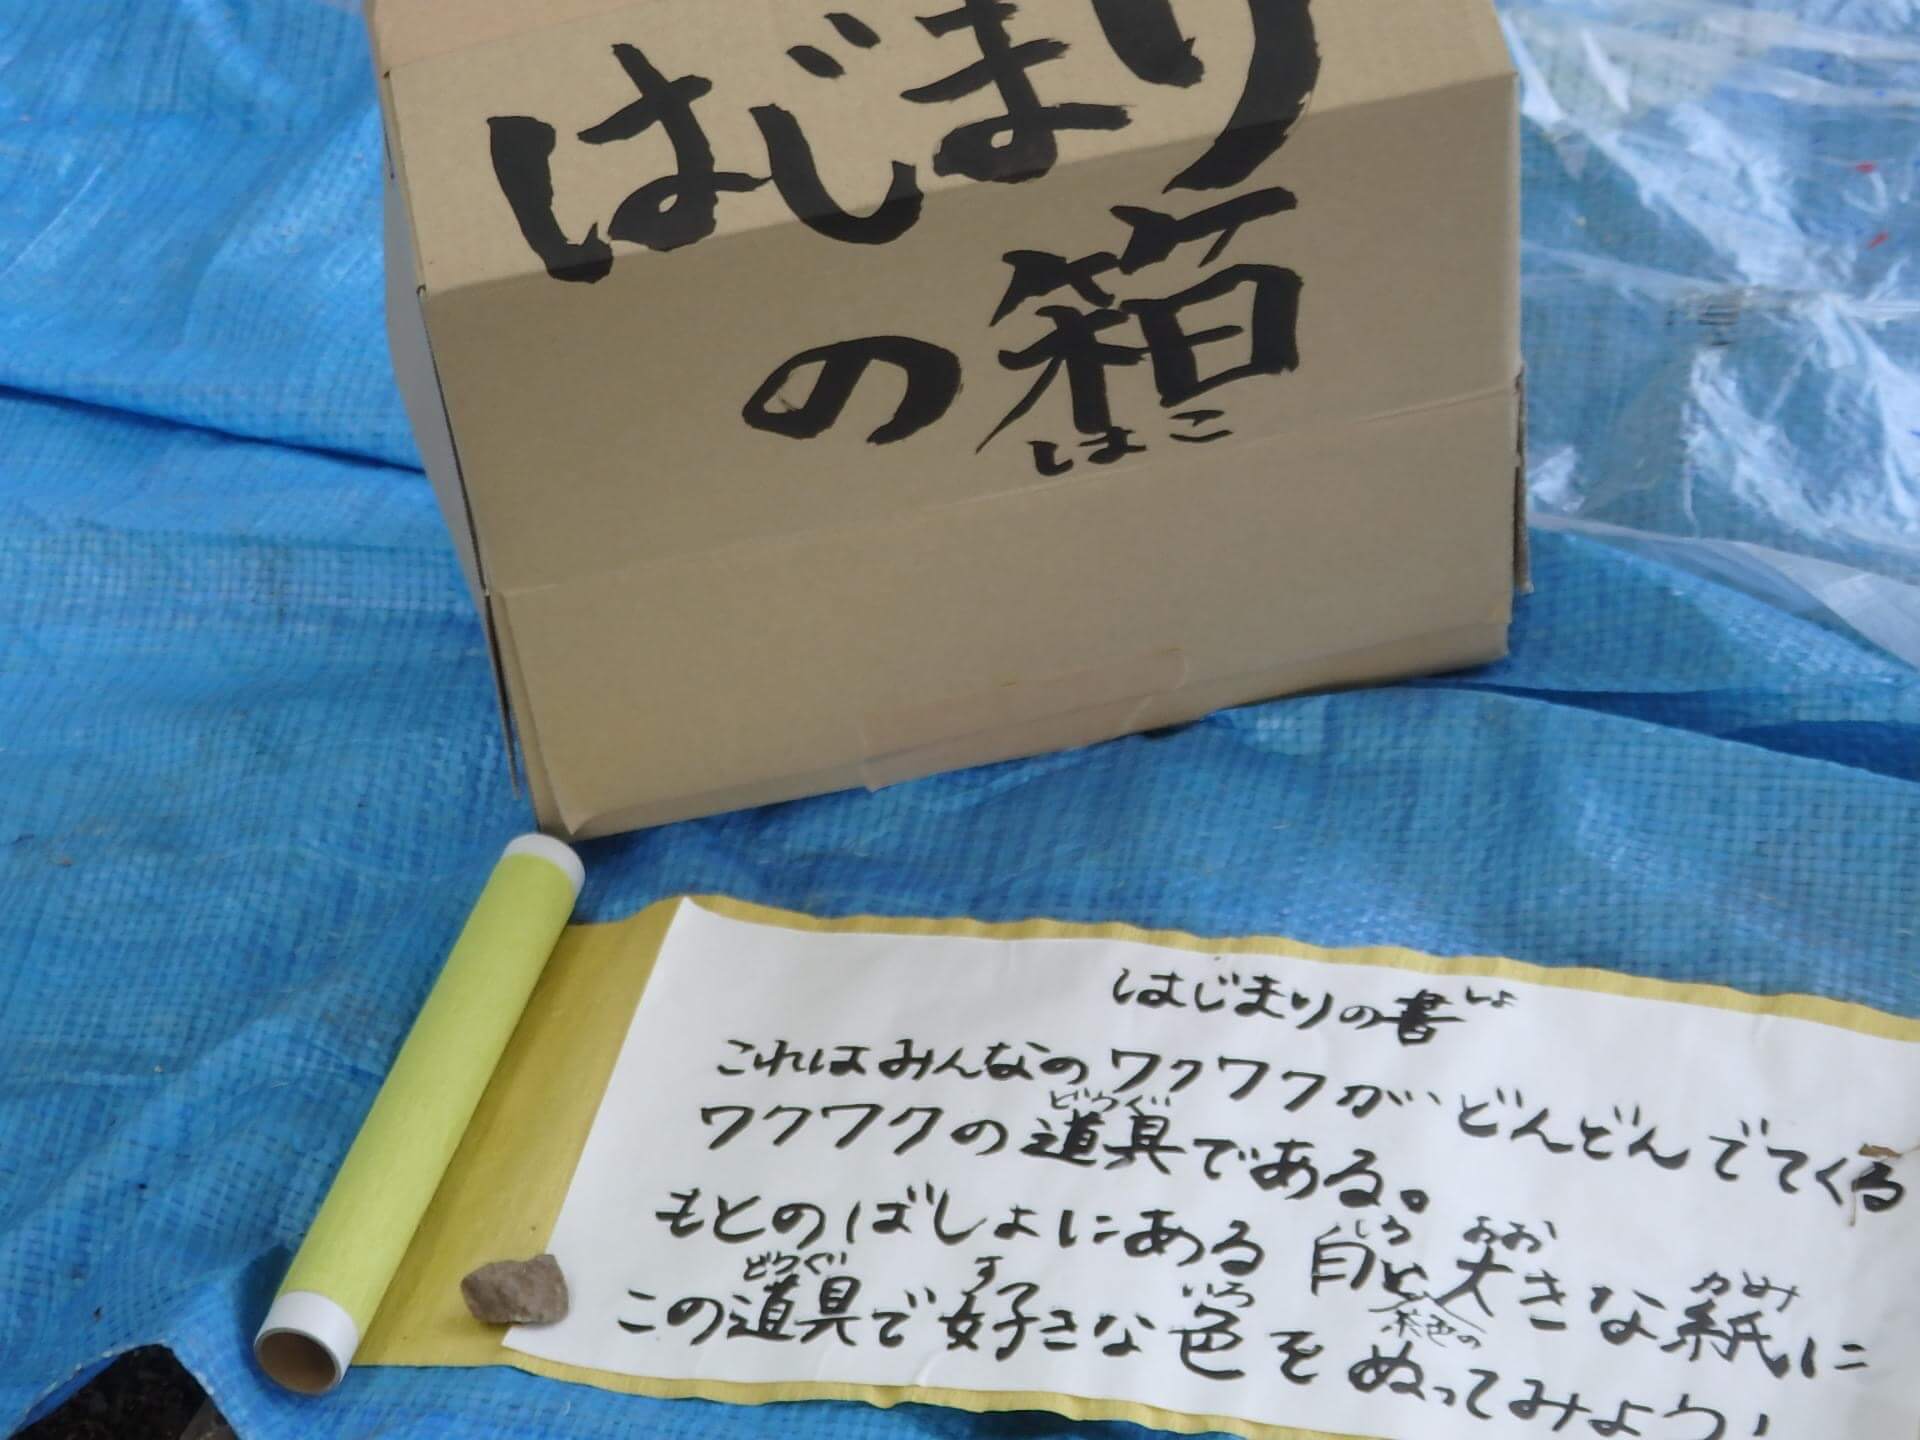 はじまり
の箱
はこ
はじまりの書
しょ
これはみんなのワクワクがどんどんでてくる
どうぐ
ワクワクの道具である。
しろ おお かみ
もとのばしょにある白と大きな紙に
茶色の
どうぐ す いろ
この道具で好きな色をぬってみよう!